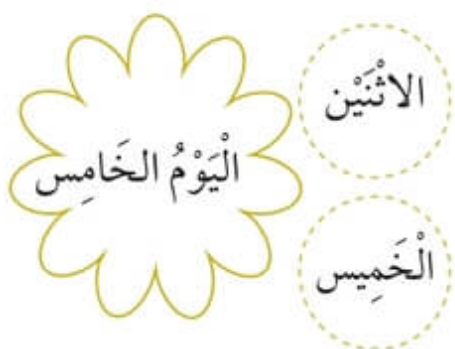 الاثْنَيْن
الْيَوْمُ الخَامِس
الْخَمِيس